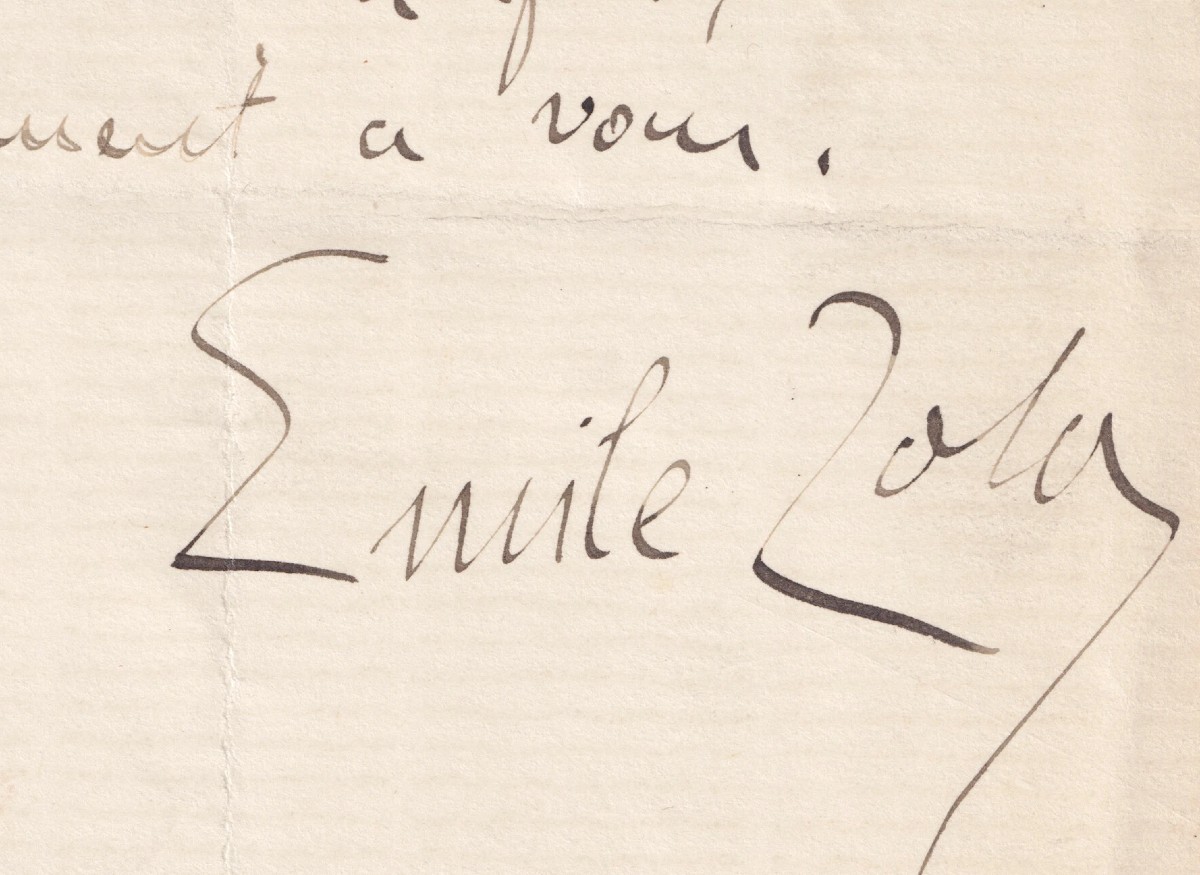 ment a vous.
Emile Zola